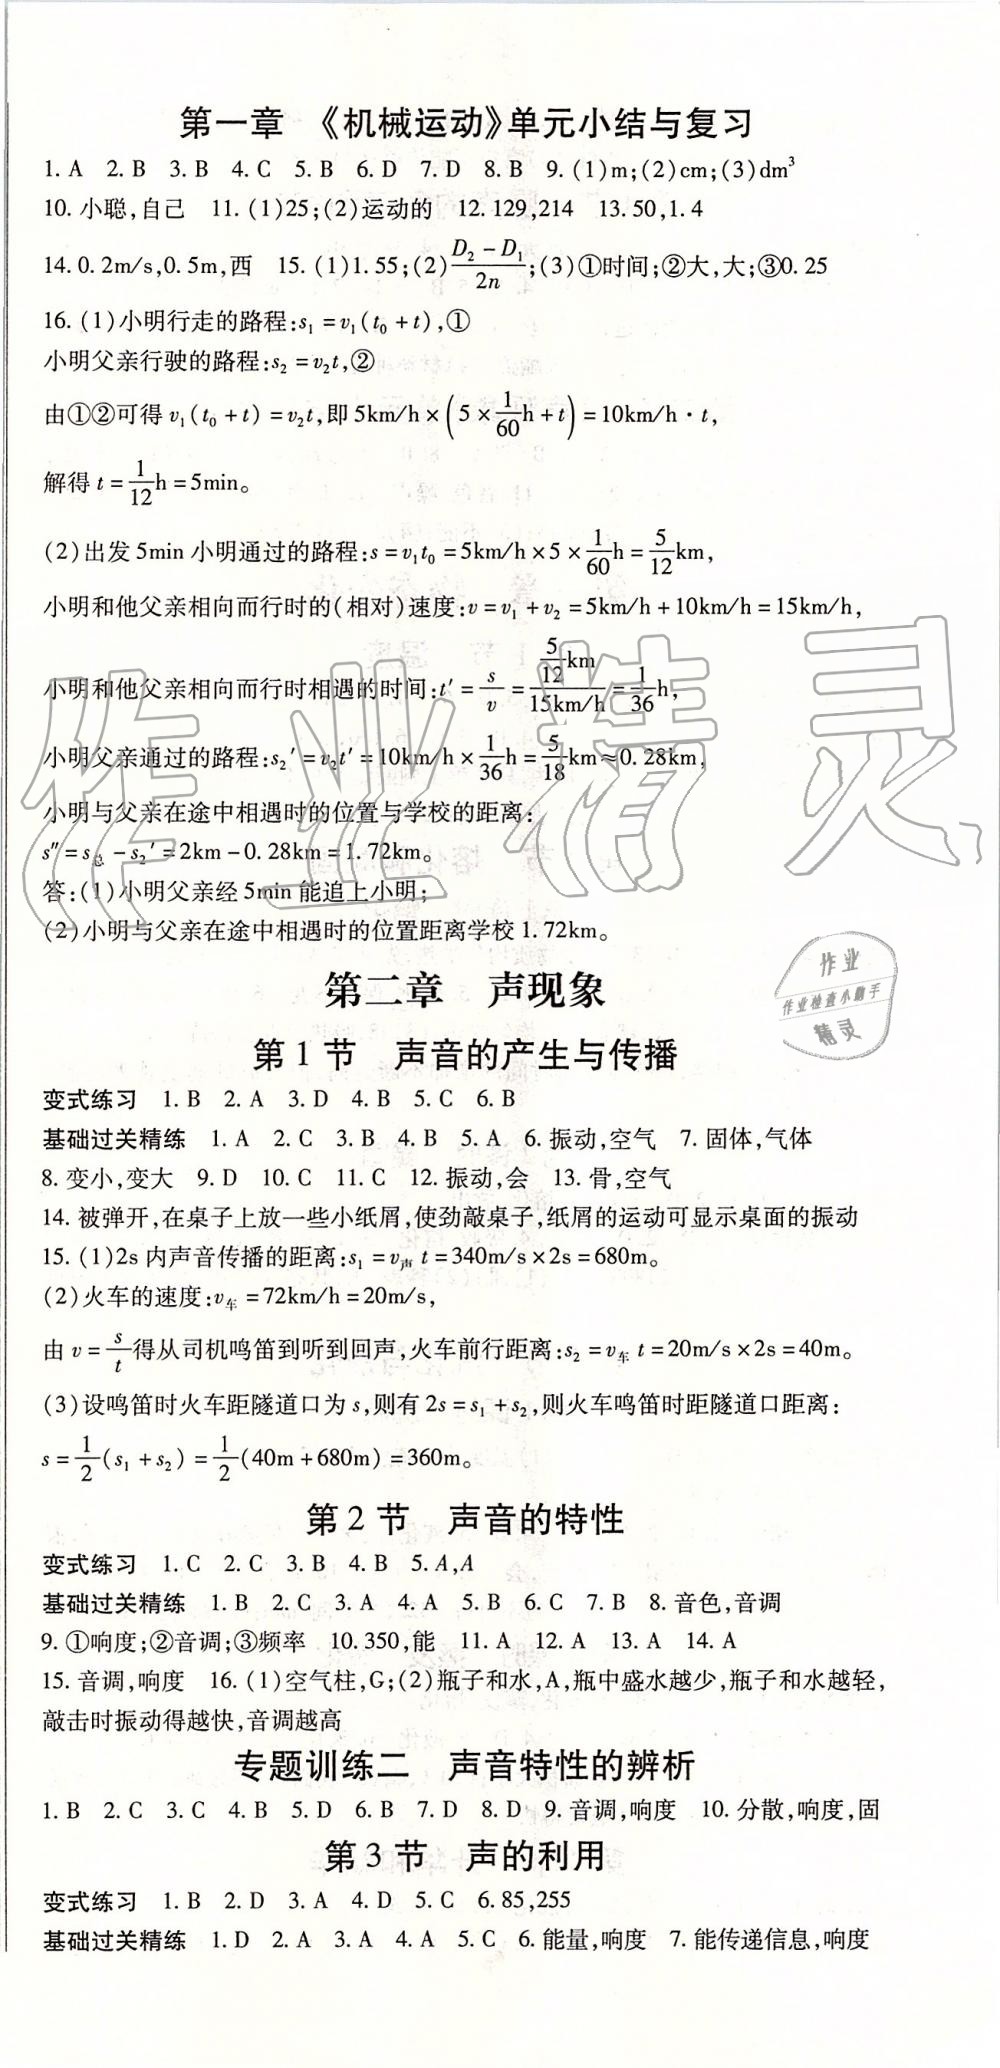 第一章 《机械运动》单元小结与复习
1. A 2. B 3. B 4. C 5. B 6. D 7. D 8. B 9. (1)m;(2)cm;(3)dm³
10. 小聪,自己 11. (1)25;(2)运动的 12. 129,214 13. 50,1.4
14. 0.2m/s,0.5m,西 15. (1)1.55;(2)(D₂-D₁)/2n;(3)①时间;②大,大;③0.25
16. (1)小明行走的路程:s₁=v₁(t₀+t),①
小明父亲行驶的路程:s₂=v₂t,②
由①②可得 v₁(t₀+t)=v₂t,即 5km/h×(5×1/60h+t)=10km/h·t,
解得 t=1/12h=5min。
(2)出发 5min 小明通过的路程:s=v₁t₀=5km/h×5×1/60h=5/12km,
小明和他父亲相向而行时的(相对)速度:v=v₁+v₂=5km/h+10km/h=15km/h,
小明和他父亲相向而行时相遇的时间:t′=s/v=(5/12km)/(15km/h)=1/36h,
小明父亲通过的路程:s₂′=v₂t′=10km/h×1/36h=5/18km≈0.28km,
小明与父亲在途中相遇时的位置与学校的距离:
s″=s总-s₂′=2km-0.28km=1.72km。
答:(1)小明父亲经 5min 能追上小明;
(2)小明与父亲在途中相遇时的位置距离学校 1.72km。
第二章 声现象
第 1 节 声音的产生与传播
变式练习 1. B 2. A 3. D 4. B 5. C 6. B
基础过关精练 1. A 2. C 3. B 4. B 5. A 6. 振动,空气 7. 固体,气体
8. 变小,变大 9. D 10. C 11. C 12. 振动,会 13. 骨,空气
14. 被弹开,在桌子上放一些小纸屑,使劲敲桌子,纸屑的运动可显示桌面的振动
15. (1)2s 内声音传播的距离:s₁=v声 t=340m/s×2s=680m。
(2)火车的速度:v车=72km/h=20m/s,
由 v=s/t得从司机鸣笛到听到回声,火车前行距离:s₂=v车 t=20m/s×2s=40m。
(3)设鸣笛时火车距隧道口为 s,则有 2s=s₁+s₂,则火车鸣笛时距隧道口距离:
s=1/2(s₁+s₂)=1/2(40m+680m)=360m。
第 2 节 声音的特性
变式练习 1. C 2. C 3. B 4. B 5. A,A
基础过关精练 1. B 2. C 3. A 4. A 5. B 6. C 7. B 8. 音色,音调
9. ①响度;②音调;③频率 10. 350,能 11. A 12. A 13. A 14. A
15. 音调,响度 16. (1)空气柱,G;(2)瓶子和水,A,瓶中盛水越少,瓶子和水越轻,
敲击时振动得越快,音调越高
专题训练二 声音特性的辨析
1. B 2. C 3. C 4. B 5. D 6. B 7. D 8. D 9. 音调,响度 10. 分散,响度,固
第 3 节 声的利用
变式练习 1. B 2. D 3. A 4. D 5. C 6. 85,255
基础过关精练 1. D 2. A 3. A 4. A 5. C 6. 能量,响度 7. 能传递信息,响度
作业精灵
作业
作业检查小助手
精灵